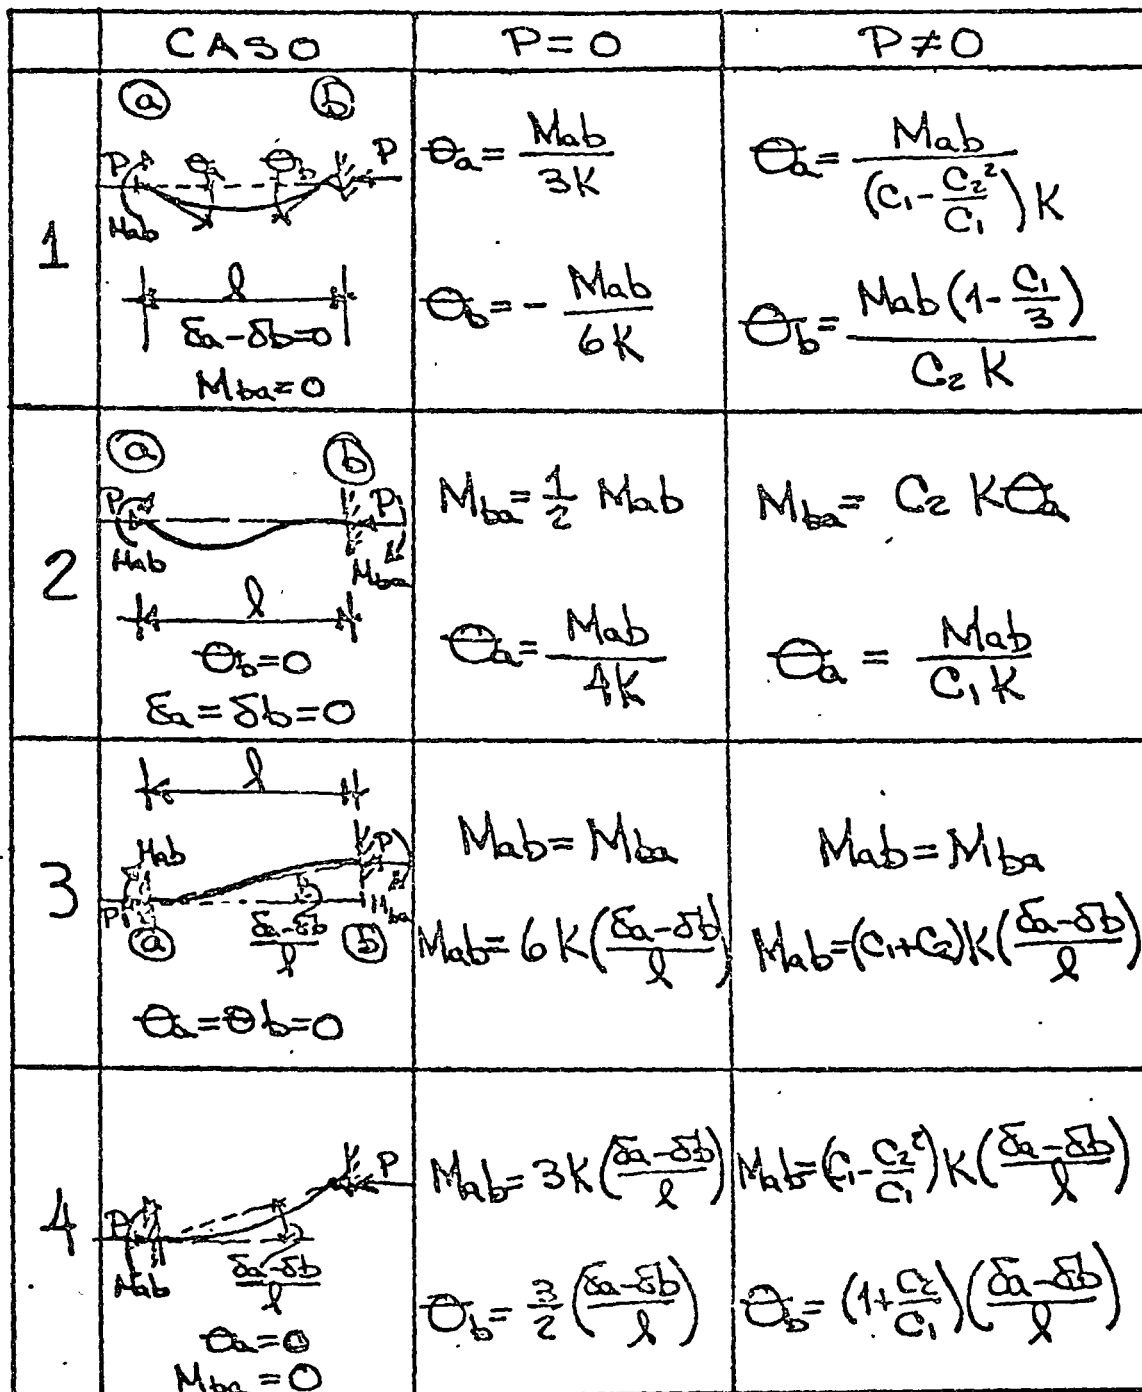 CASO P=0 P≠0
1
ⓐ ⓑ
P θa θb P
Mab
l
δa-δb=0
Mba=0
θa= Mab / 3K
θb= - Mab / 6K
θa= Mab / (C1 - C2² / C1) K
θb= Mab (1 - C1 / 3) / C2 K
2
ⓐ ⓑ
P P
Mab Mba
l
θb=0
δa = δb = 0
Mba= 1/2 Mab
θa= Mab / 4K
Mba= C2 Kθa
θa = Mab / C1 K
3
l
Mab P
P Mba
ⓐ δa-δb / l ⓑ
θa=θb=0
Mab= Mba
Mab= 6K(δa-δb / l)
Mab= Mba
Mab=(C1+C2)K(δa-δb / l)
4
P P
Mab δa-δb / l
θa=0
Mba=0
Mab= 3K(δa-δb / l)
θb= 3/2 (δa-δb / l)
Mab=(C1 - C2² / C1)K(δa-δb / l)
θb= (1+ C2 / C1)(δa-δb / l)